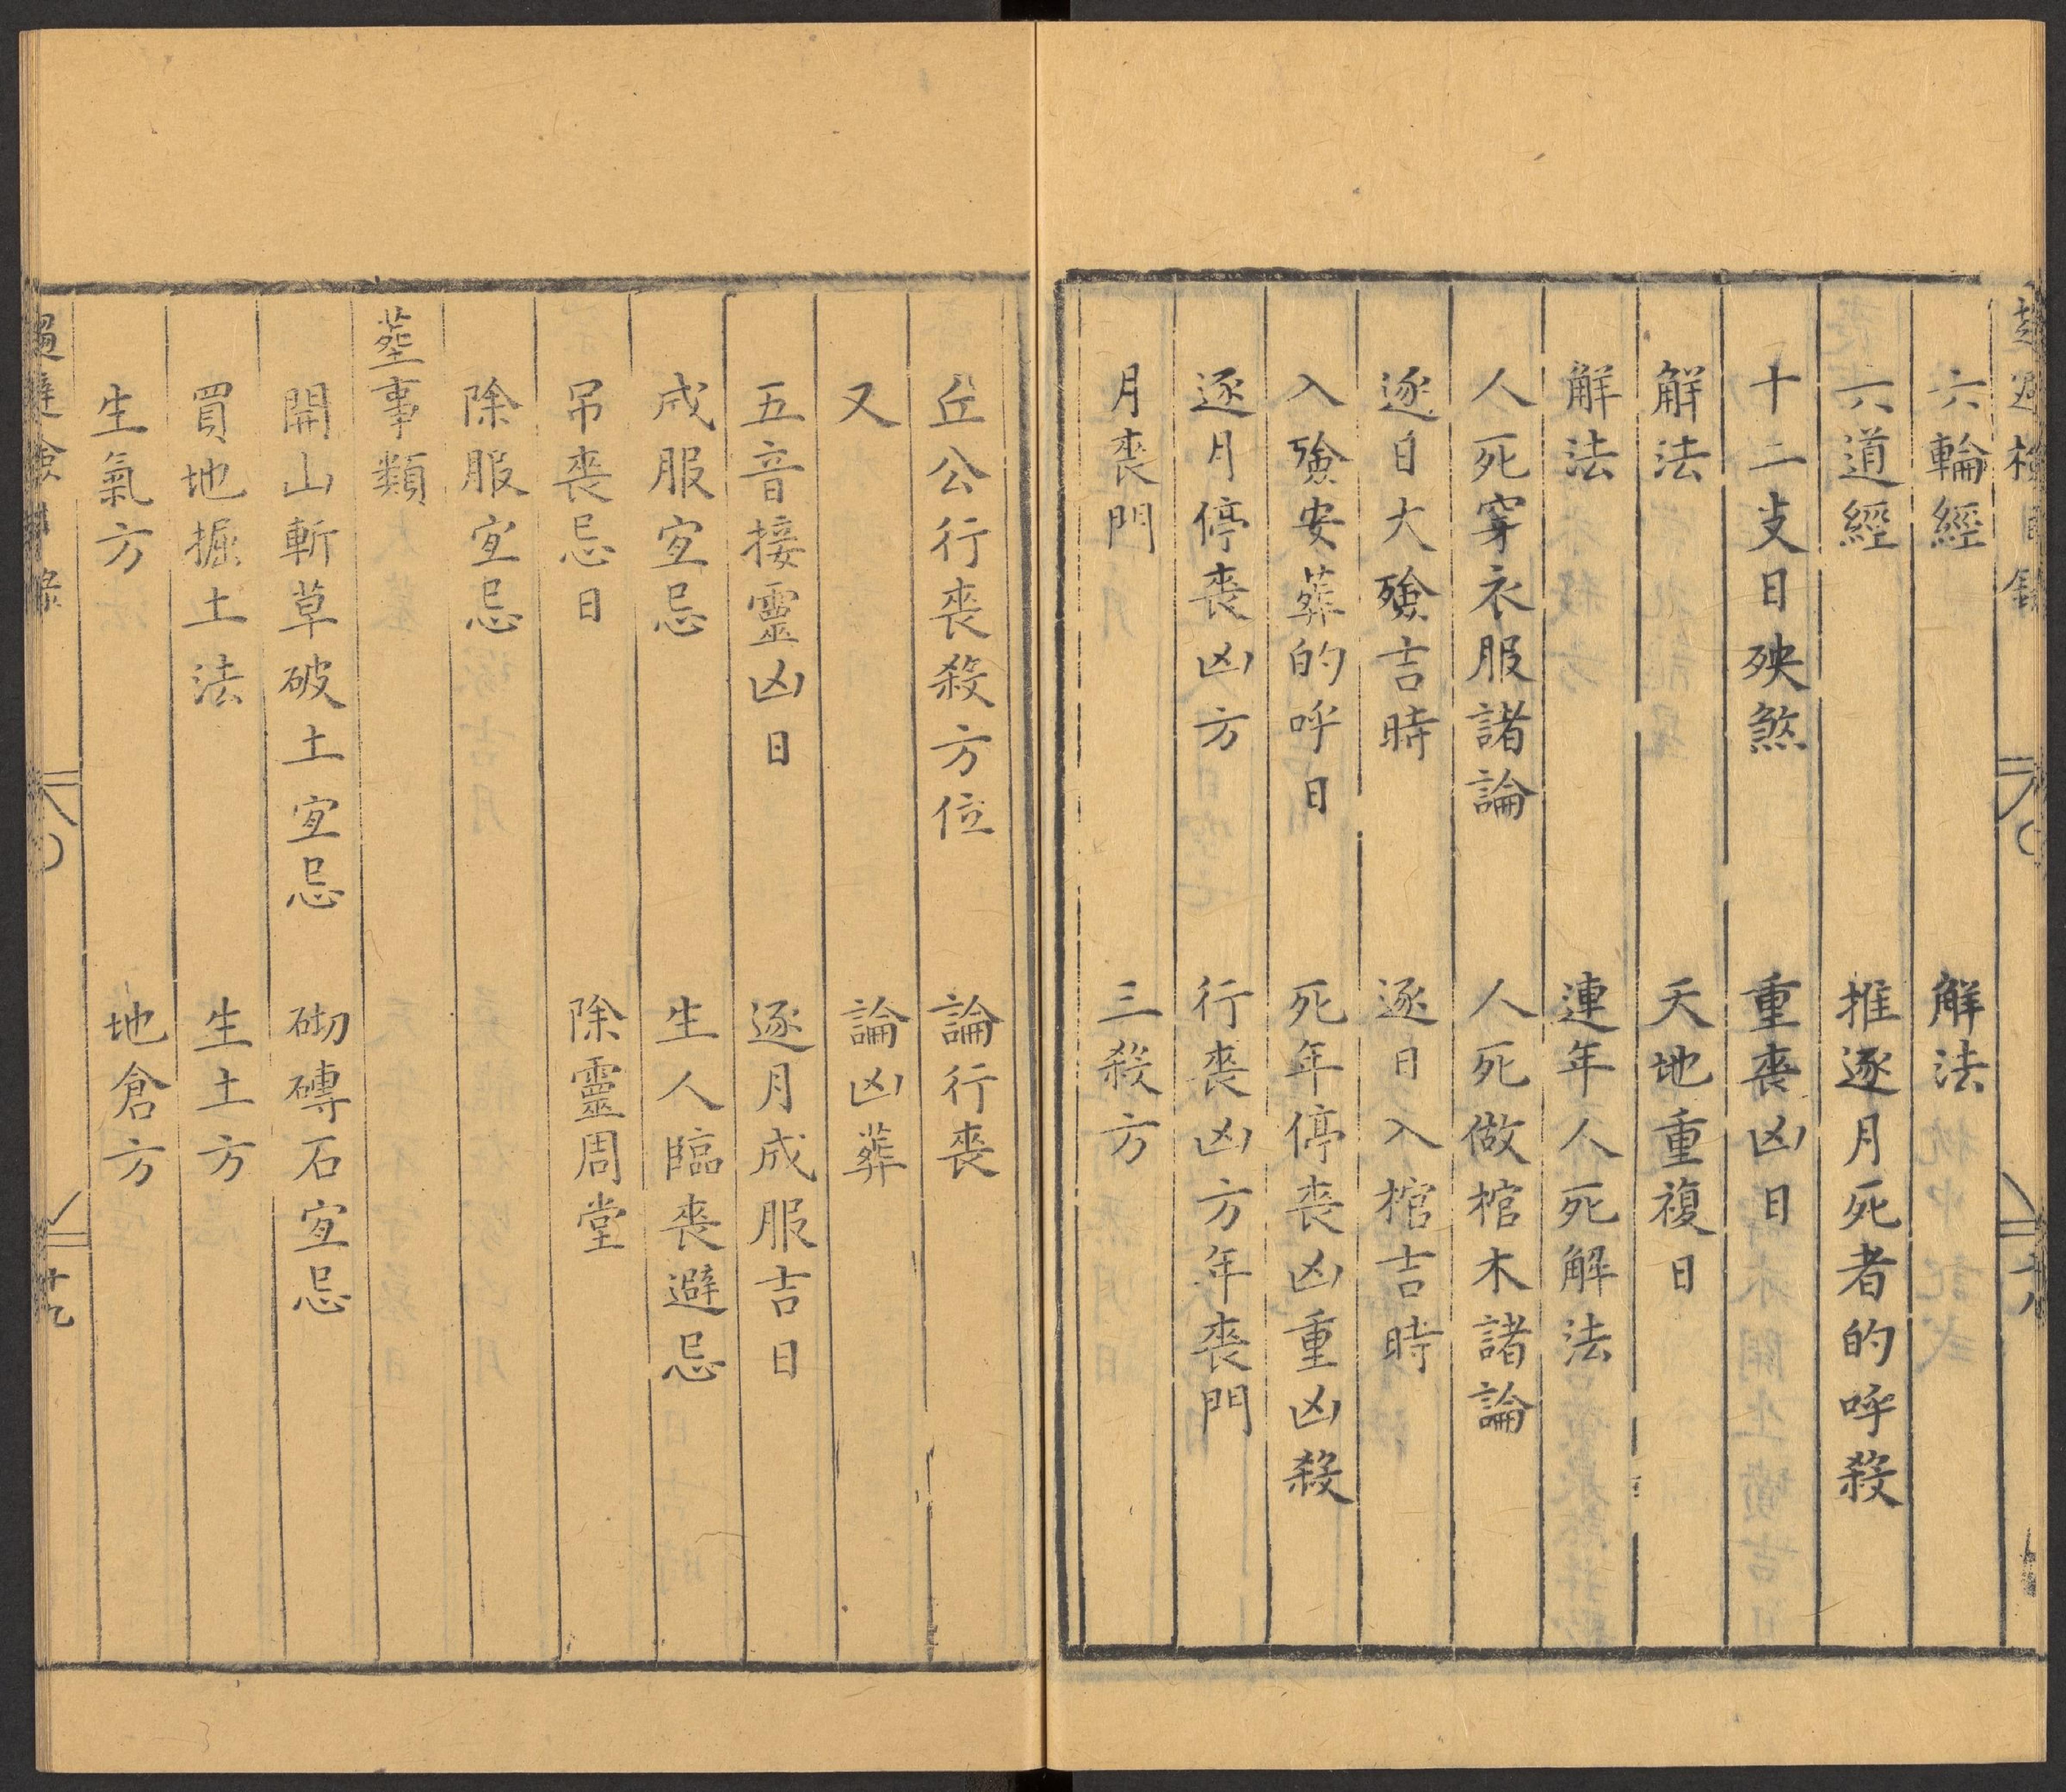 六輪經　解法
六道經　推逐月死者的呼殺
十二支日殃煞　重喪凶日
解法　天地重複日
解法　連年人死解法
人死穿衣服諸論　人死做棺木諸論
逐日大殮吉時　逐日入棺吉時
入殮安葬的呼日　死年停喪凶重凶殺
逐月停喪凶方　行喪凶方年喪門
月喪門　三殺方
丘公行喪殺方位　論行喪
又　論凶葬
五音接靈凶日　逐月成服吉日
成服宜忌　生人臨喪避忌
吊喪忌日　除靈周堂
除服宜忌
塟事類
開山斬草破土宜忌　砌磚石宜忌
買地掘土法　生土方
生氣方　地倉方